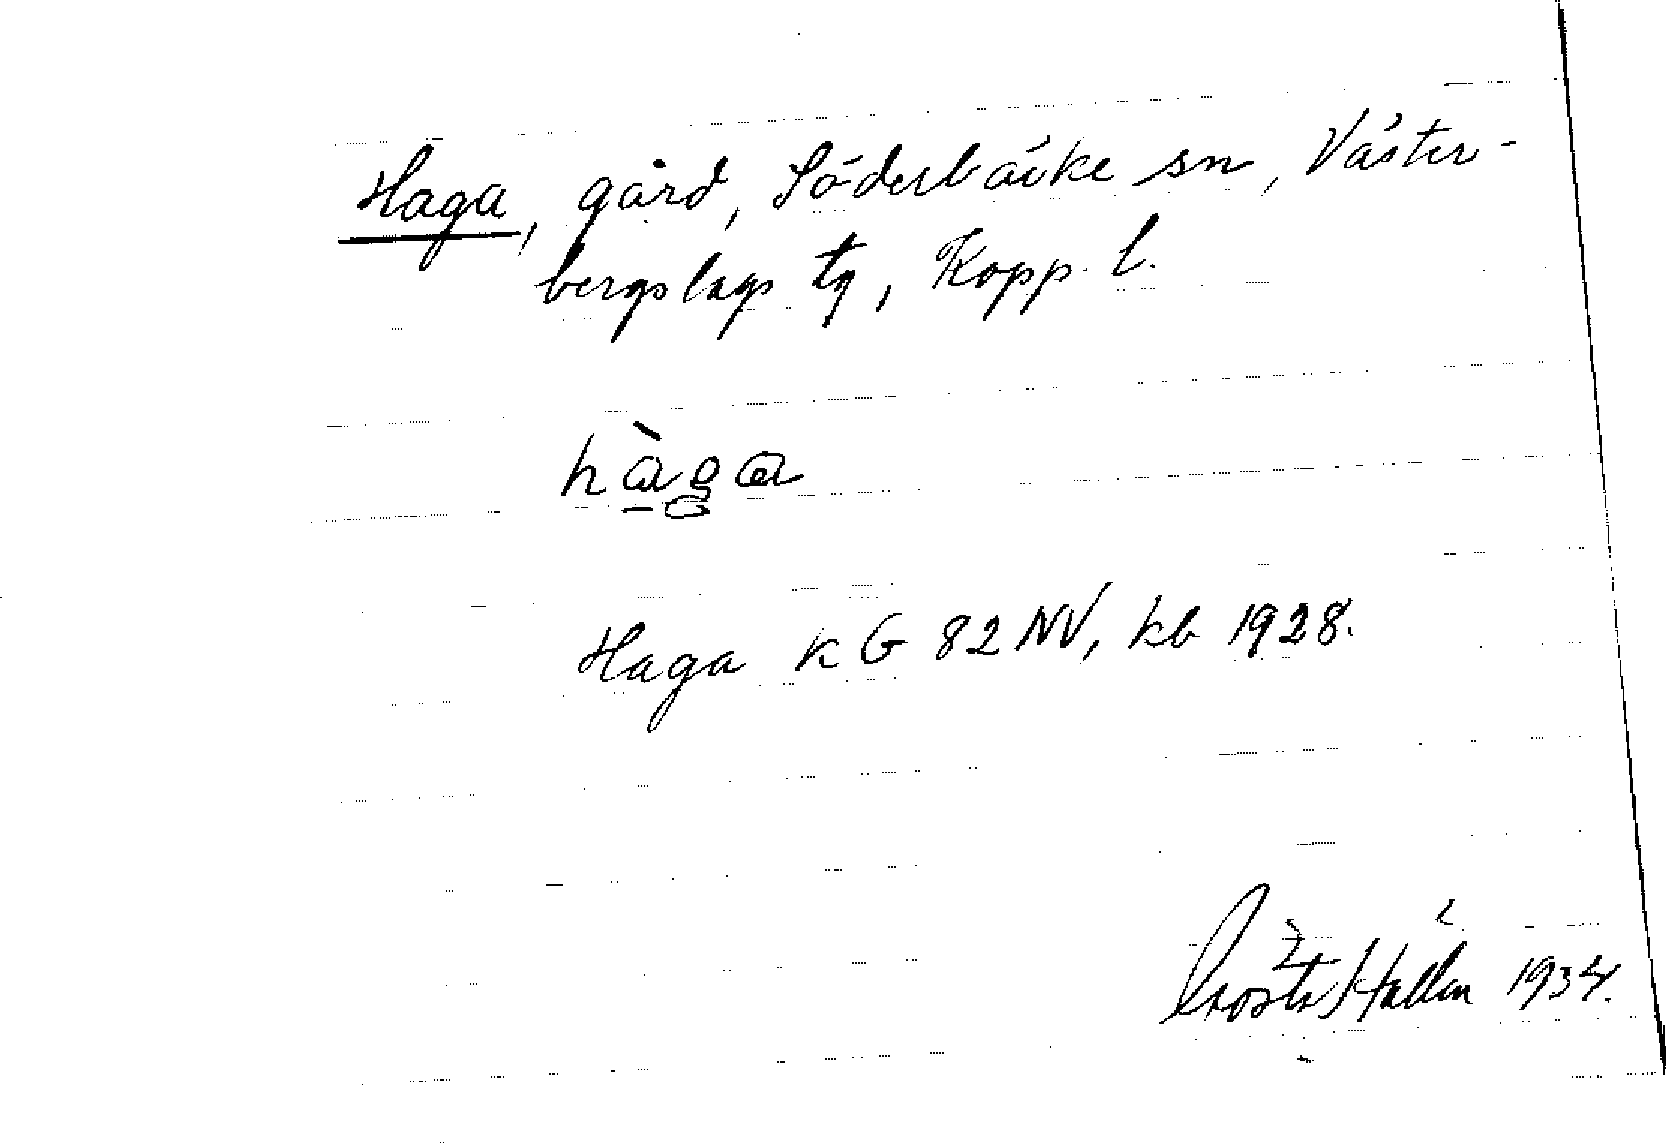 Haga, gård, Söderbärke sn, Väster-
bergslags tg, Kopp. l.
hàga
Haga kG 82 NV, kb 1928.
Gösta Hallén 1934.